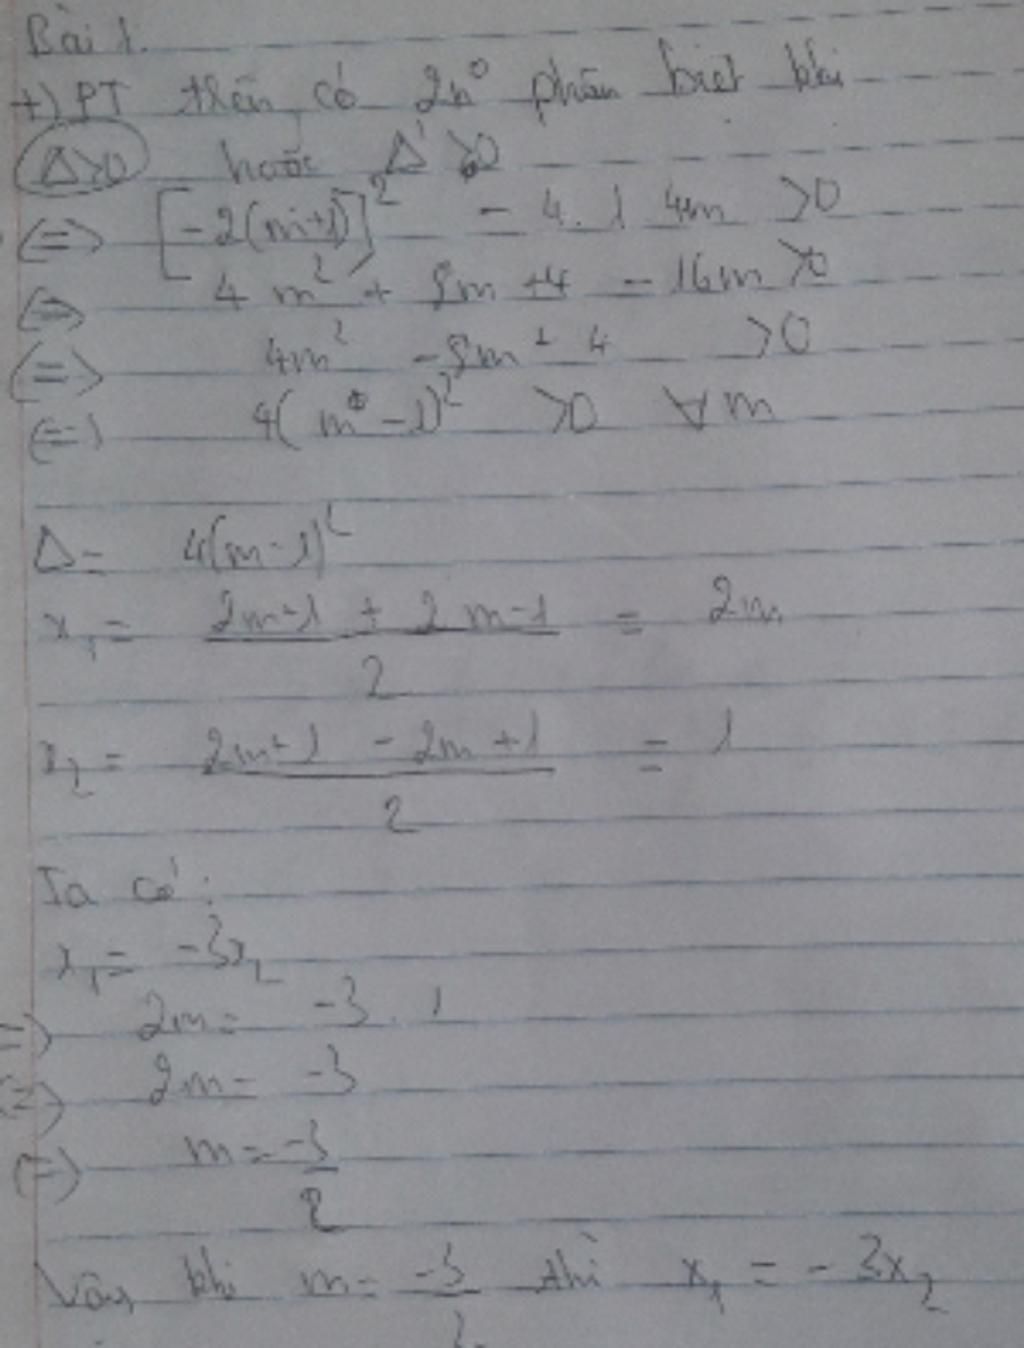 Bài 1.
+) PT trên có 2n⁰ phân biệt khi
Δ>0 hoặc Δ' >0
(=) [-2(m+1)]² - 4.1 4m >0
(=) 4m² + 8m +4 - 16m >0
(=) 4m² - 8m + 4 >0
(=) 4(m-1)² >0 ∀m
Δ = 4(m-1)²
x₁ = (2m-1 + 2m-1)/2 = 2m
x₂ = (2m+1 - 2m+1)/2 = 1
Ta có:
x₁ = -3x₂
(=) 2m = -3.1
(=) 2m = -3
(=) m = -3/2
Vậy khi m = -3/2 thì x₁ = -3x₂